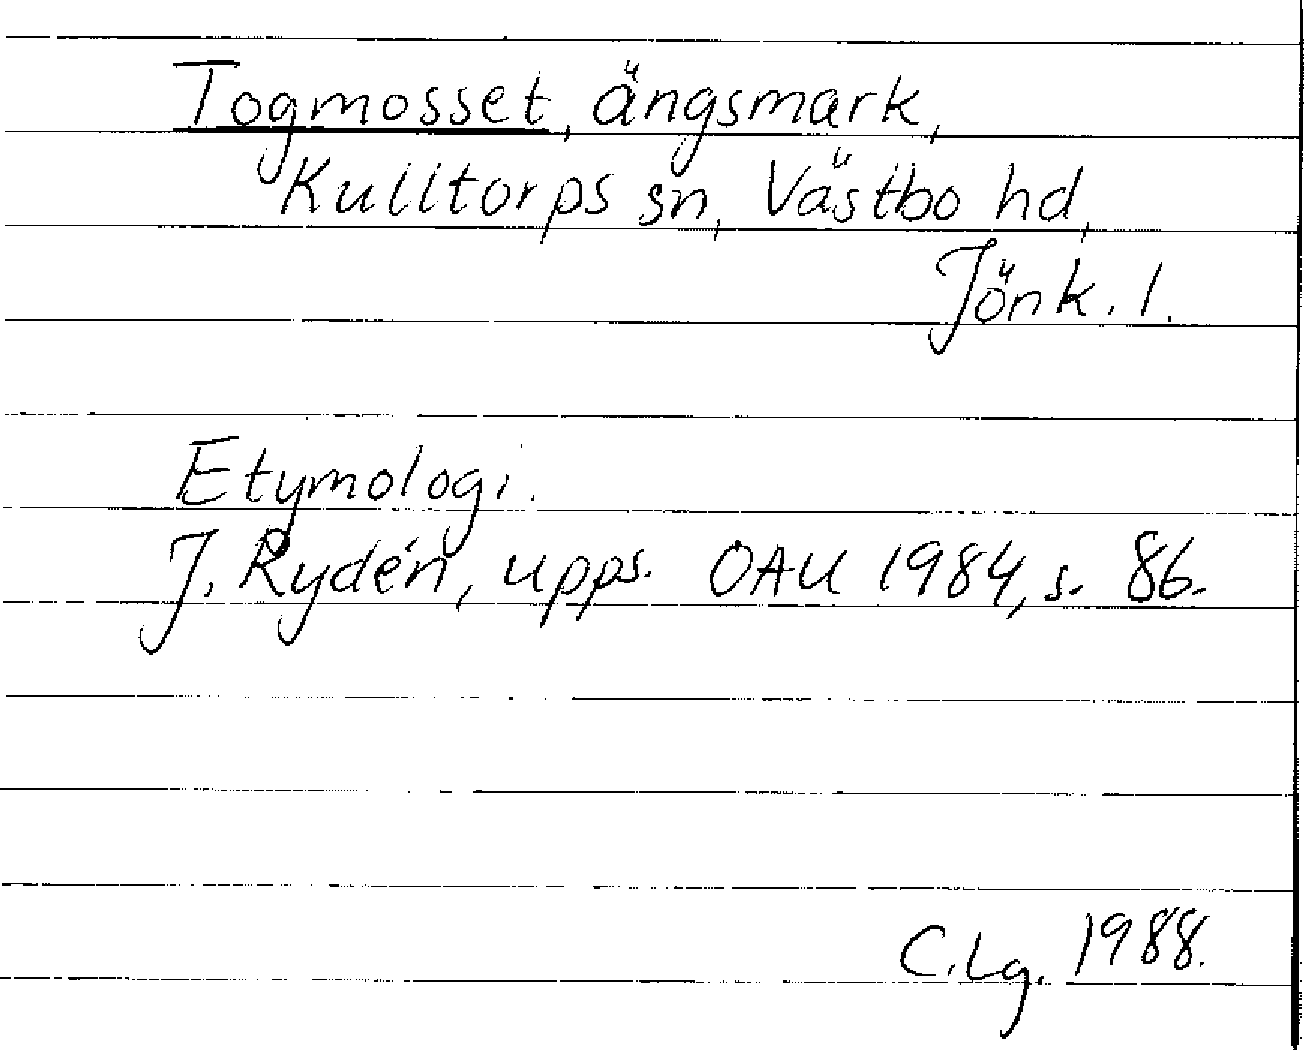 Togmosset, ängsmark,
Kulltorps sn, Västbo hd,
Jönk. l.
Etymologi.
J. Rydén, upps. OAU 1984, s. 86.
C. Lg. 1988.